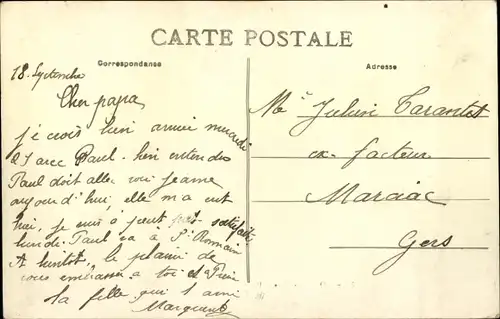 CARTE POSTALE
Correspondance
Adresse
18 Septembre
Cher papa
je crois bien arriver mercredi
avec Paul. bien entendu
Paul doit aller voir Jeanne
aujourd'hui, elle m'a écrit
hier, je suis à peut près satisfaite
lundi Paul va à St Romain
A bientôt, le plaisir de
vous embrasser a toi et a
ta fille qui t'aime
Marguerite
Mr Julien Tarantet
ex facteur
Marciac
Gers